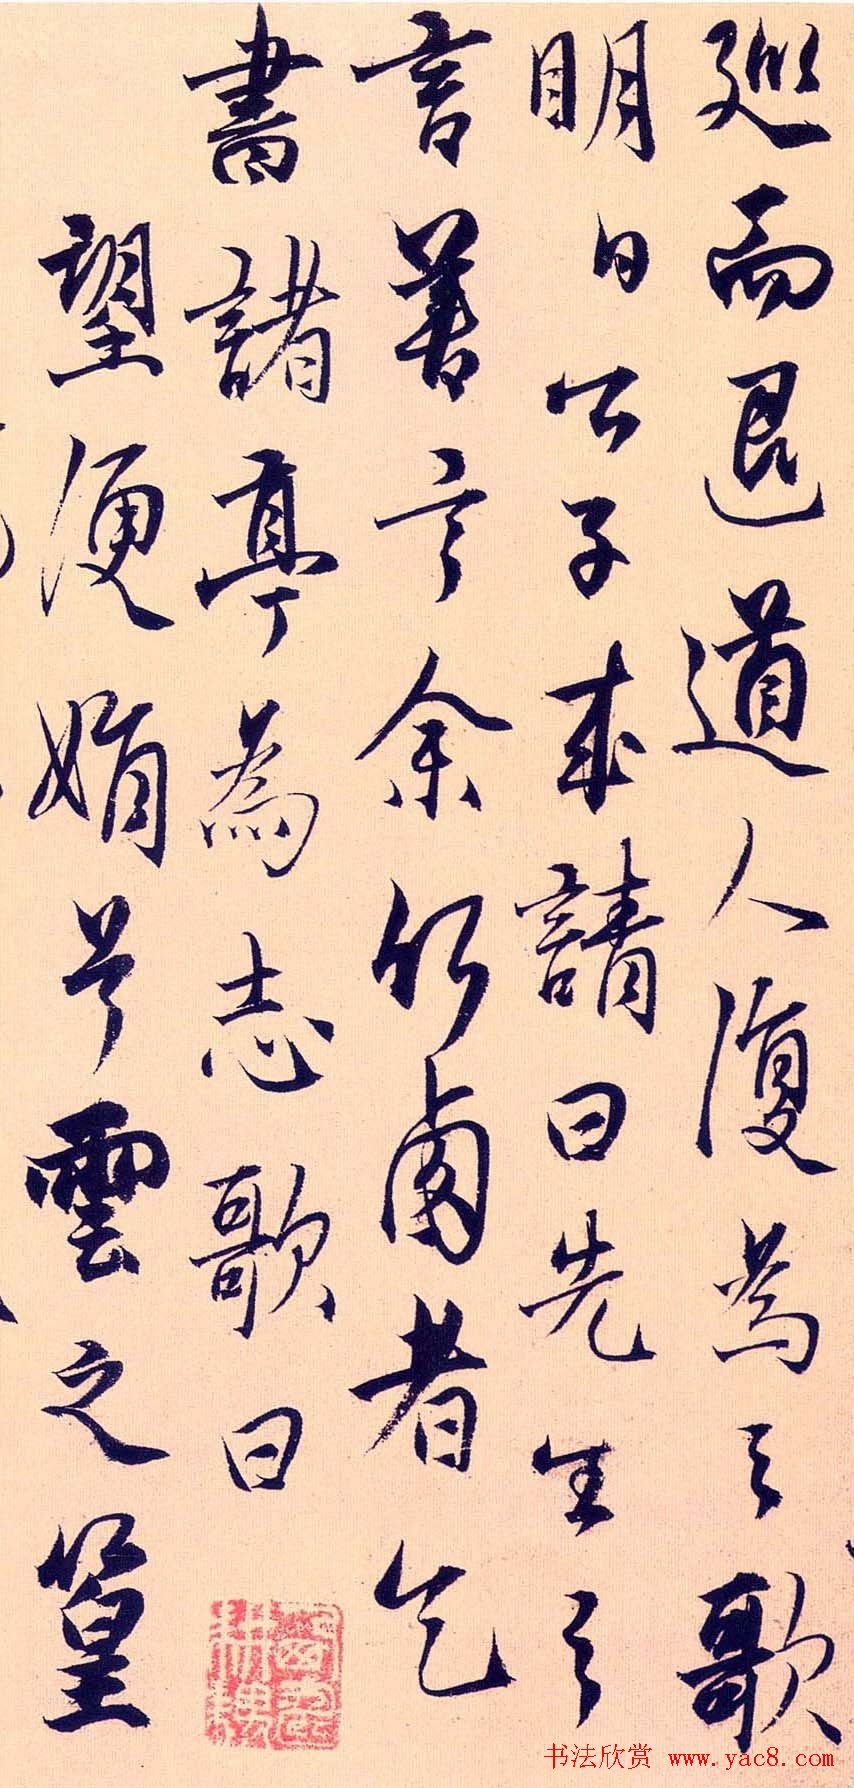 廵而退道人復為之歌
明日公子來請曰先生之
言善言余竹卥者乞
書諸亭為志歌曰
望便娟兮雲之篁
书法欣赏 www.yac8.com